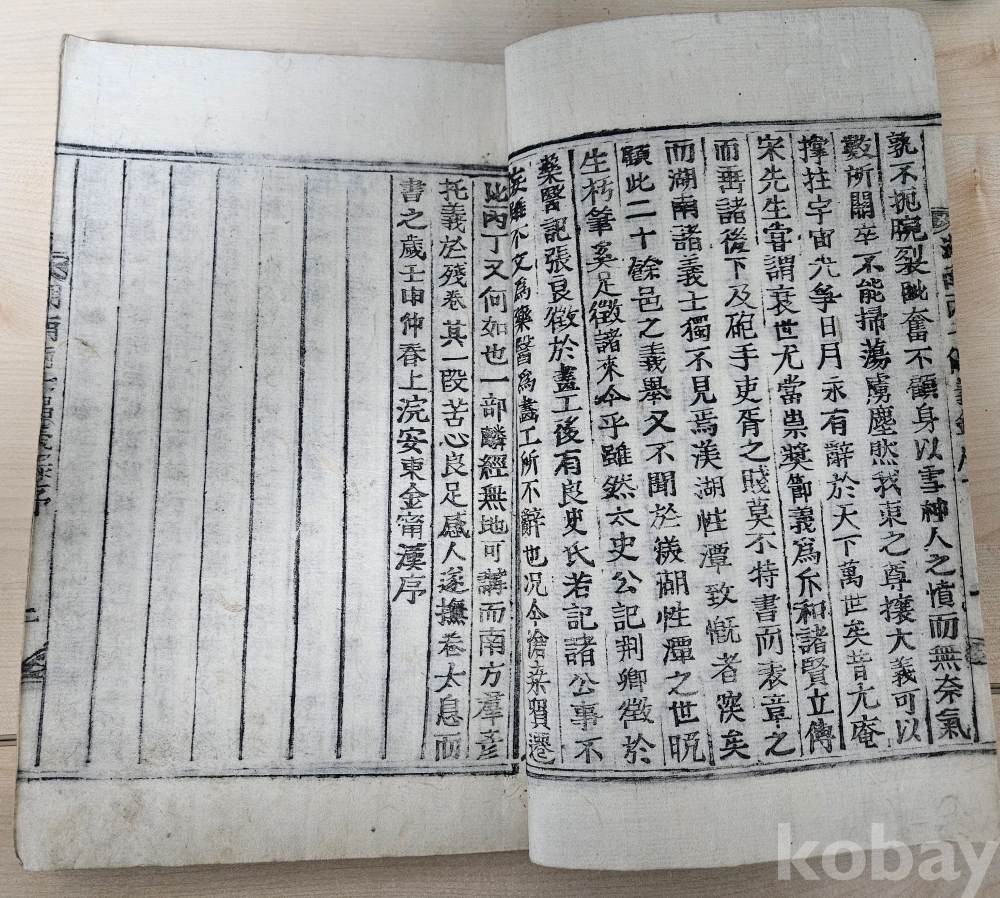 孰不扼腕裂眦奮不顧身以雪神人之憤而無奈氣
數所關卒不能掃蕩虜塵然我東之尊攘大義可以
撑拄宇宙光爭日月永有辭於天下萬世矣昔尤庵
宋先生嘗謂衰世尤當崇奬節義爲斥和諸賢立傳
而垂諸後下及砲手吏胥之賤莫不特書而表章之
而湖南諸義士獨不見焉渼湖性潭致慨者深矣
顧此二十餘邑之義擧又不聞於渼湖性潭之世晩
生朽筆奚足徵諸來今乎雖然太史公記荆卿徵於
藥醫記張良徵於畵工後有良史氏若記諸公事不
妄雖不文爲藥醫爲畵工所不辭也况今滄桑貿遷
此丙丁又何如也一部麟經無地可講而南方羣彦
托義於殘卷其一段苦心良足感人遂撫卷太息而
書之歲壬申仲春上浣安東金甯漢序
kobay